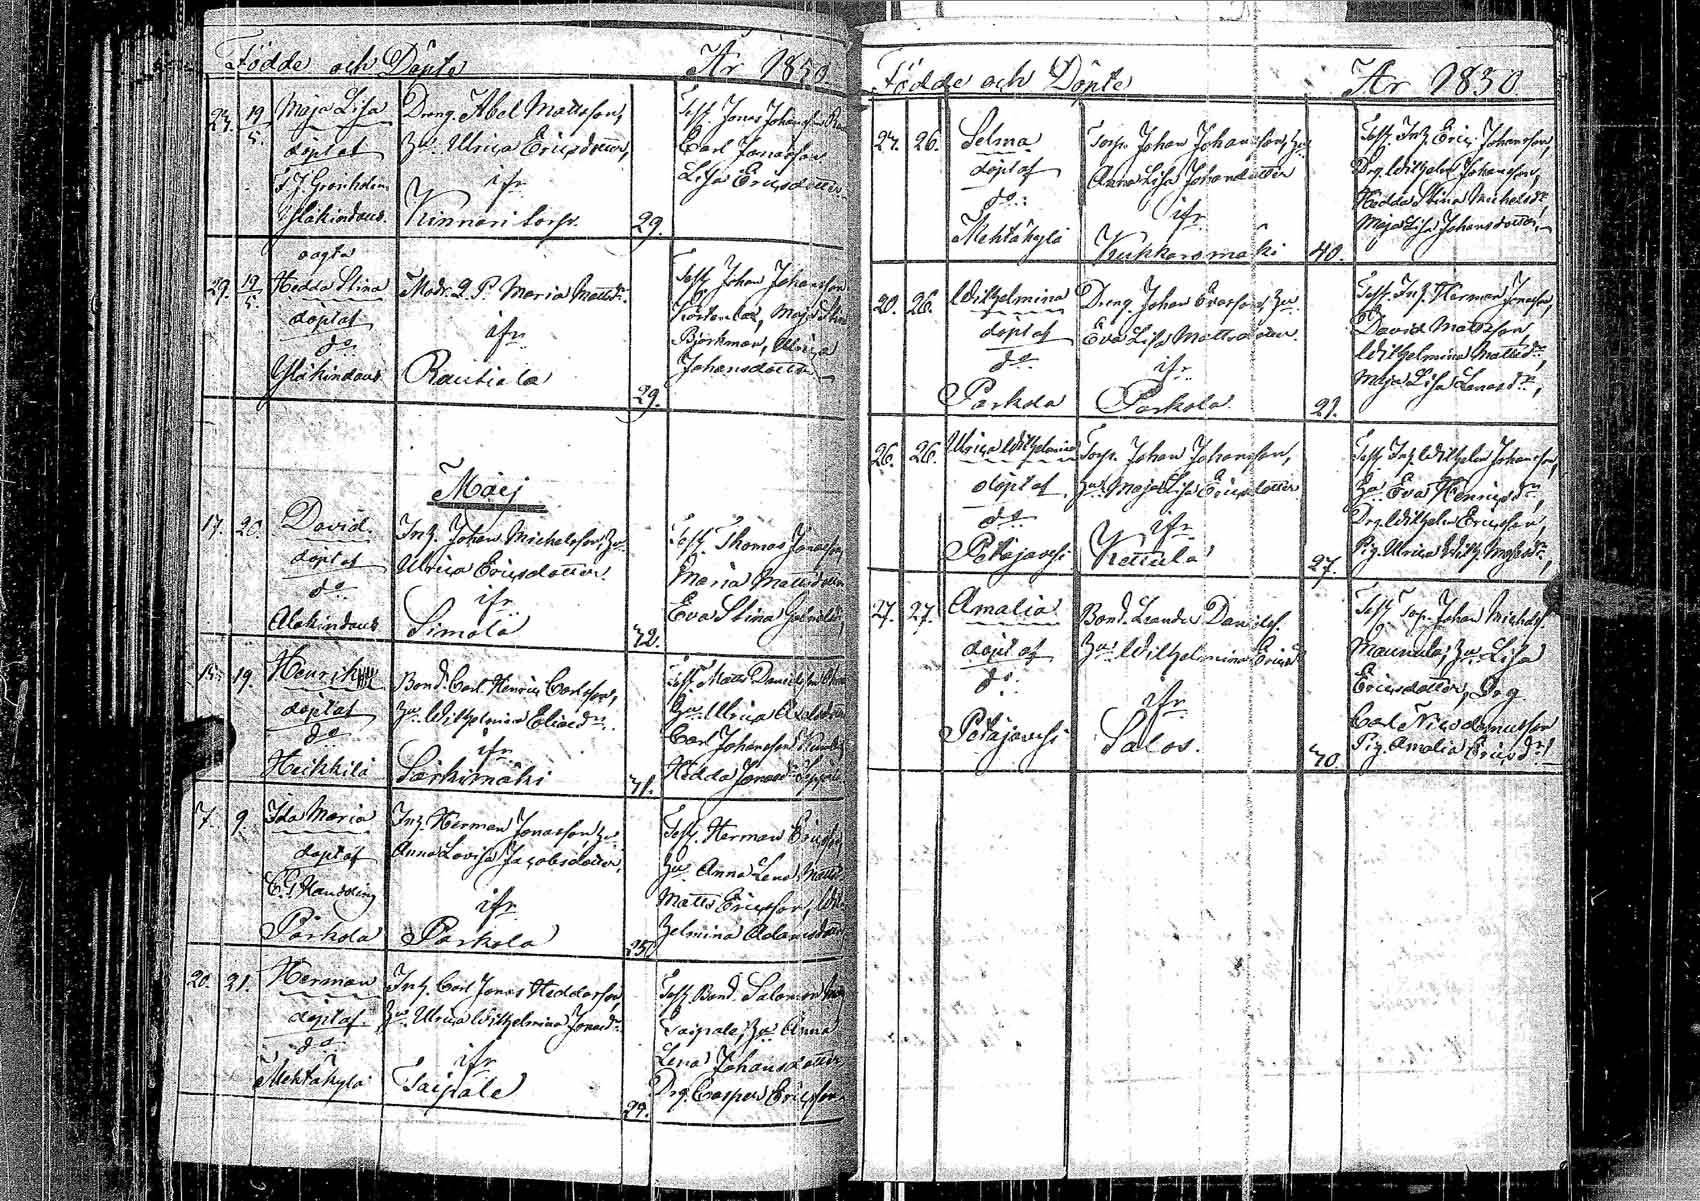 Födde och Döpte År 1850.
23. 19/5. Maja Lisa
döpt af
F. J. Grönholm
Yläkindaus
Dreng Abel Mattsson,
hu. Ulrica Ericsdotter,
ifr
Kinnari torp.
29.
Test. Jonas Johansson
Carl Jonasson
Lisa Ericsdotter
oägta
29. 19/5. Hedda Stina
döpt af
do
Yläkindaus
Modr. Q. P. Maria Mattsdr.
ifr
Rautiala
29.
Test. Johan Johansson
Maja Stina
Björkman, Ulrica
Johansdotter
Maij
17. 20. David
döpt af
do
Alakindaus
Inh. Johan Michelsson, hu
Ulrica Ericsdotter.
ifr
Simola
42.
Test. Thomas Jonasson,
Maria Mattsdotter
Eva Stina
15. 19. Henrik
döpt af
do
Heikkilä
Bond. Carl Henric Carlsson,
hu Wilhelmina Eliaedr.
ifr
Särkimäki
41.
Test. Matts Danielsson
hu Ulrica
Carl Johansson
Hedda Jonaedr
7. 9. Ida Maria
döpt af
Parkola
Inh. Herman Jonasson, hu
Anna Lovisa Jacobsdotter,
ifr
Parkola
250
Test. Herman Ericsson,
hu Anna Lena Matts
Matts Ericsson, Wil
helmina Adamsdotter
20. 21. Herman
döpt af
do
Mehtäkylä
Inh. Carl Jonas Heddasson,
hu. Ulrica Wilhelmina Jonaedr.
ifr
Taipale
29.
Test. Bond. Salomon
Taipale, hu Anna
Lena Johansdotter
Drg. Casper Ericsson
Födde och Döpte År 1850
23. 26. Selma
döpt af
do:
Mehtäkylä
Torp. Johan Johansson, hu
Anna Lisa Johansdotter
ifr
Kukkaromäki
40.
Test. Inh. Eric Johansson,
Drg. Wilhelm Johansson,
Hedda Stina Michelsdr,
Maja Lisa Johansdotter,
20. 26. Wilhelmina
döpt af
do
Parkola
Dreng. Johan Evasson, hu.
Eva Lisa Mattsdotter.
ifr
Parkola
21.
Test. Inh. Herman Jonasson,
David Mattsson,
Wilhelmina Mattsdr,
Maja Lisa Lenasdr,
26. 26. Ulrica Wilhelmina
döpt af
do
Potajavesi
Torp. Johan Johansson,
hu. Maja Lisa Ericsdotter
ifr
Kettula
27.
Test. Inh. Wilhelm Johansson,
hu Eva Henricsdr,
Drg. Wilhelm Ericsson,
Pig. Ulrica Wilh.
27. 27. Amalia
döpt af
do
Potajavesi
Bond. Leander Daniels.
hu Wilhelmina Ericsdr
ifr
Salos.
40
Test. Torp. Johan Michelss.
Maunula, hu Lisa
Ericsdotter, Drg
Carl Nicodemusson
Pig. Amalia Ericsdr.